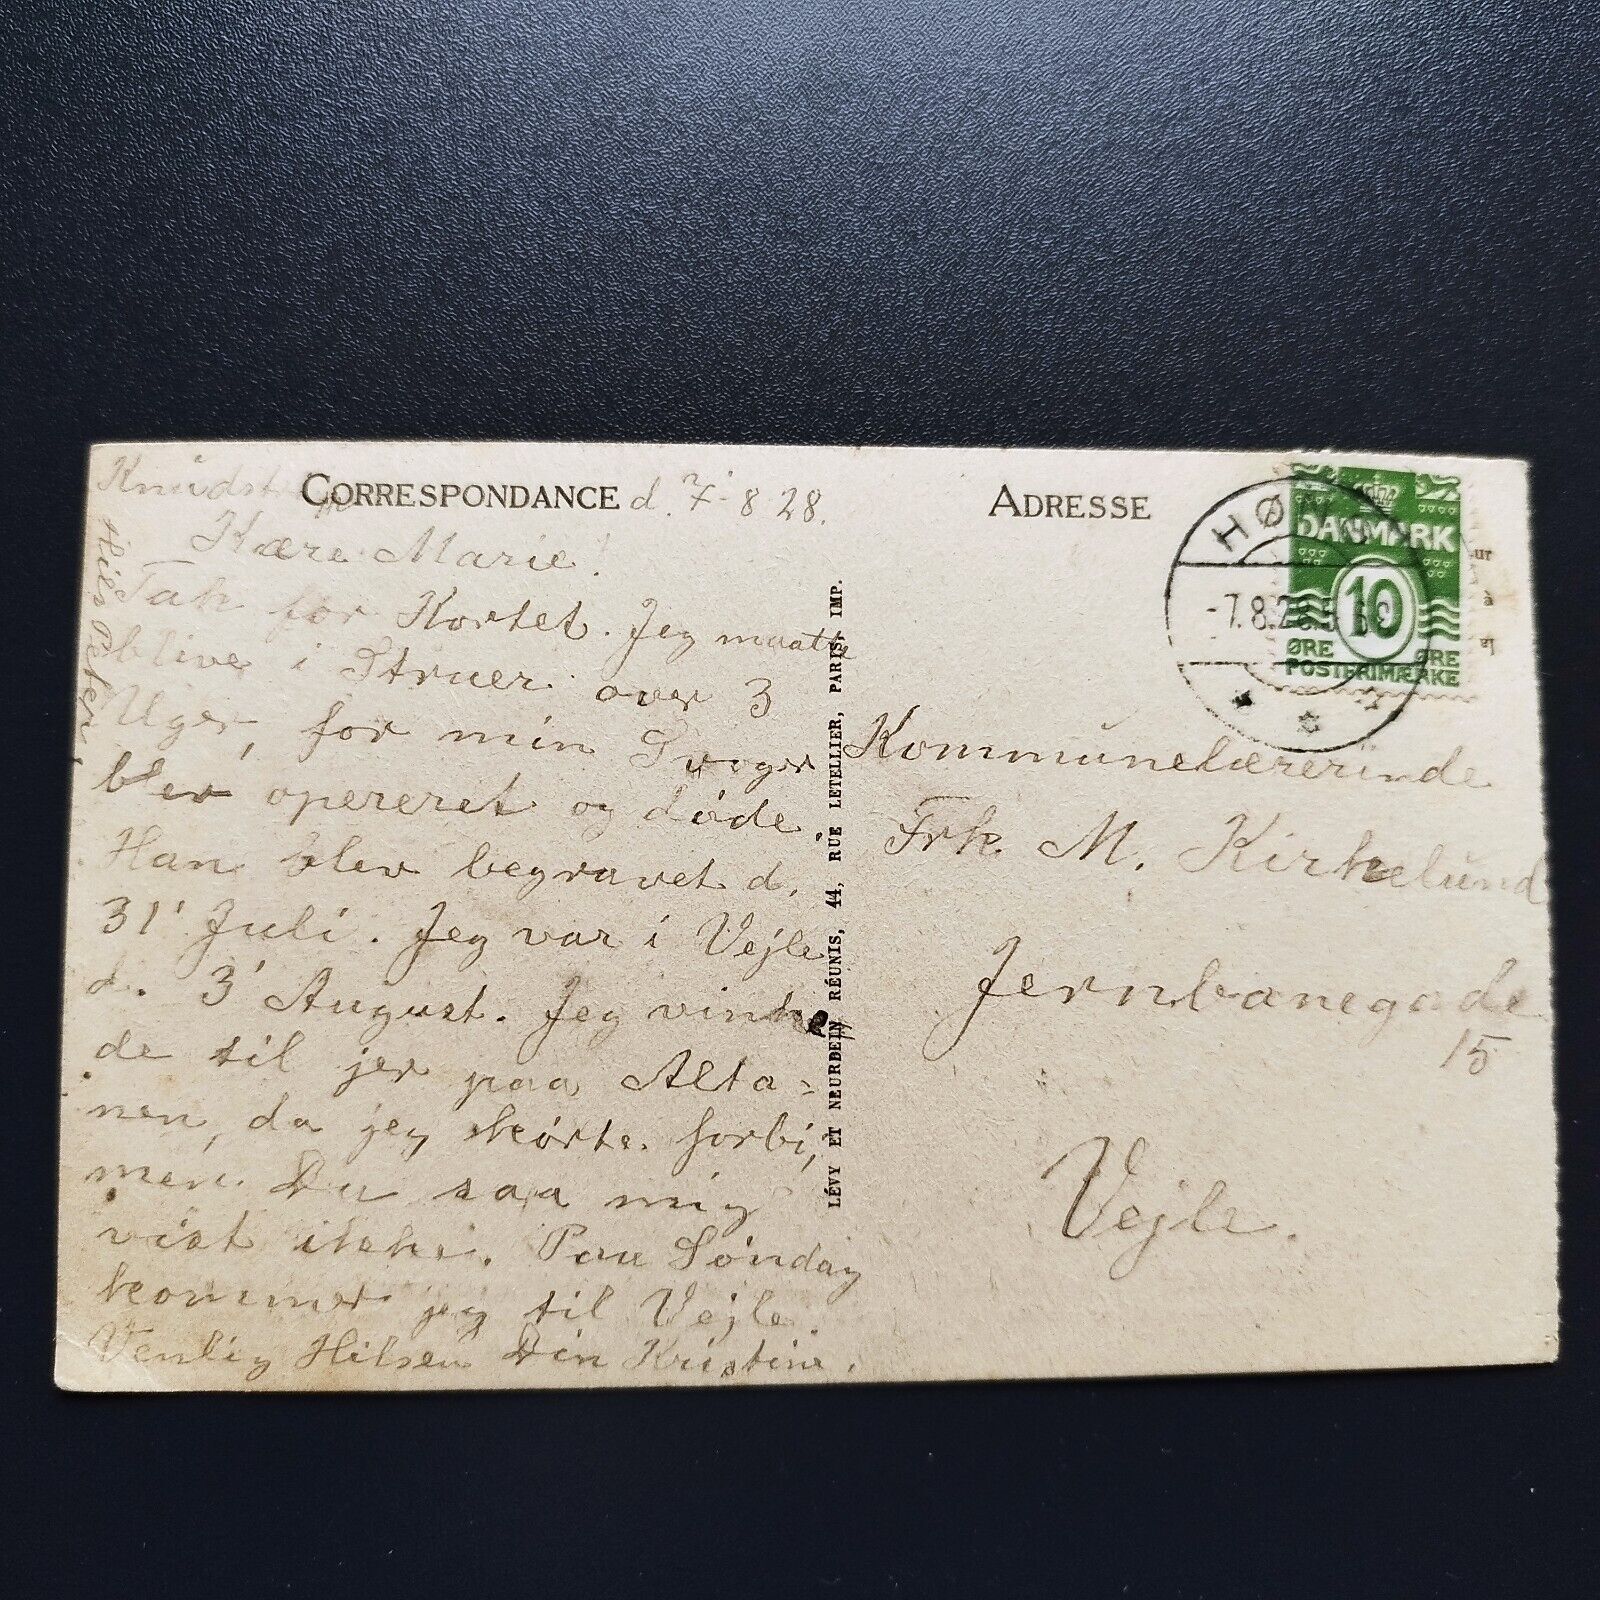 CORRESPONDANCE d. 7-8 28.
Kære Marie!
Tak for Kortet. Jeg maatte
blive i Struer over 3
Uger, for min Svoger
blev opereret og døde.
Han blev begravet d.
31' Juli. Jeg var i Vejle
d. 3' August. Jeg vinke
de til jer paa Alta=
nen, da jeg kørte forbi,
men Du saa mig
vist ikke. Paa Søndag
kommer jeg til Vejle.
Venlig Hilsen Din Kristine.
Hils Peter
LÉVY ET NEURDEIN RÉUNIS, 44, RUE LETELLIER, PARIS, IMP.
ADRESSE
DANMARK
10
ØRE ØRE
POSTFRIMÆRKE
-7.8.28.
Kommunelærerinde
Frk M. Kirkelund
Jernbanegade
15
Vejle.